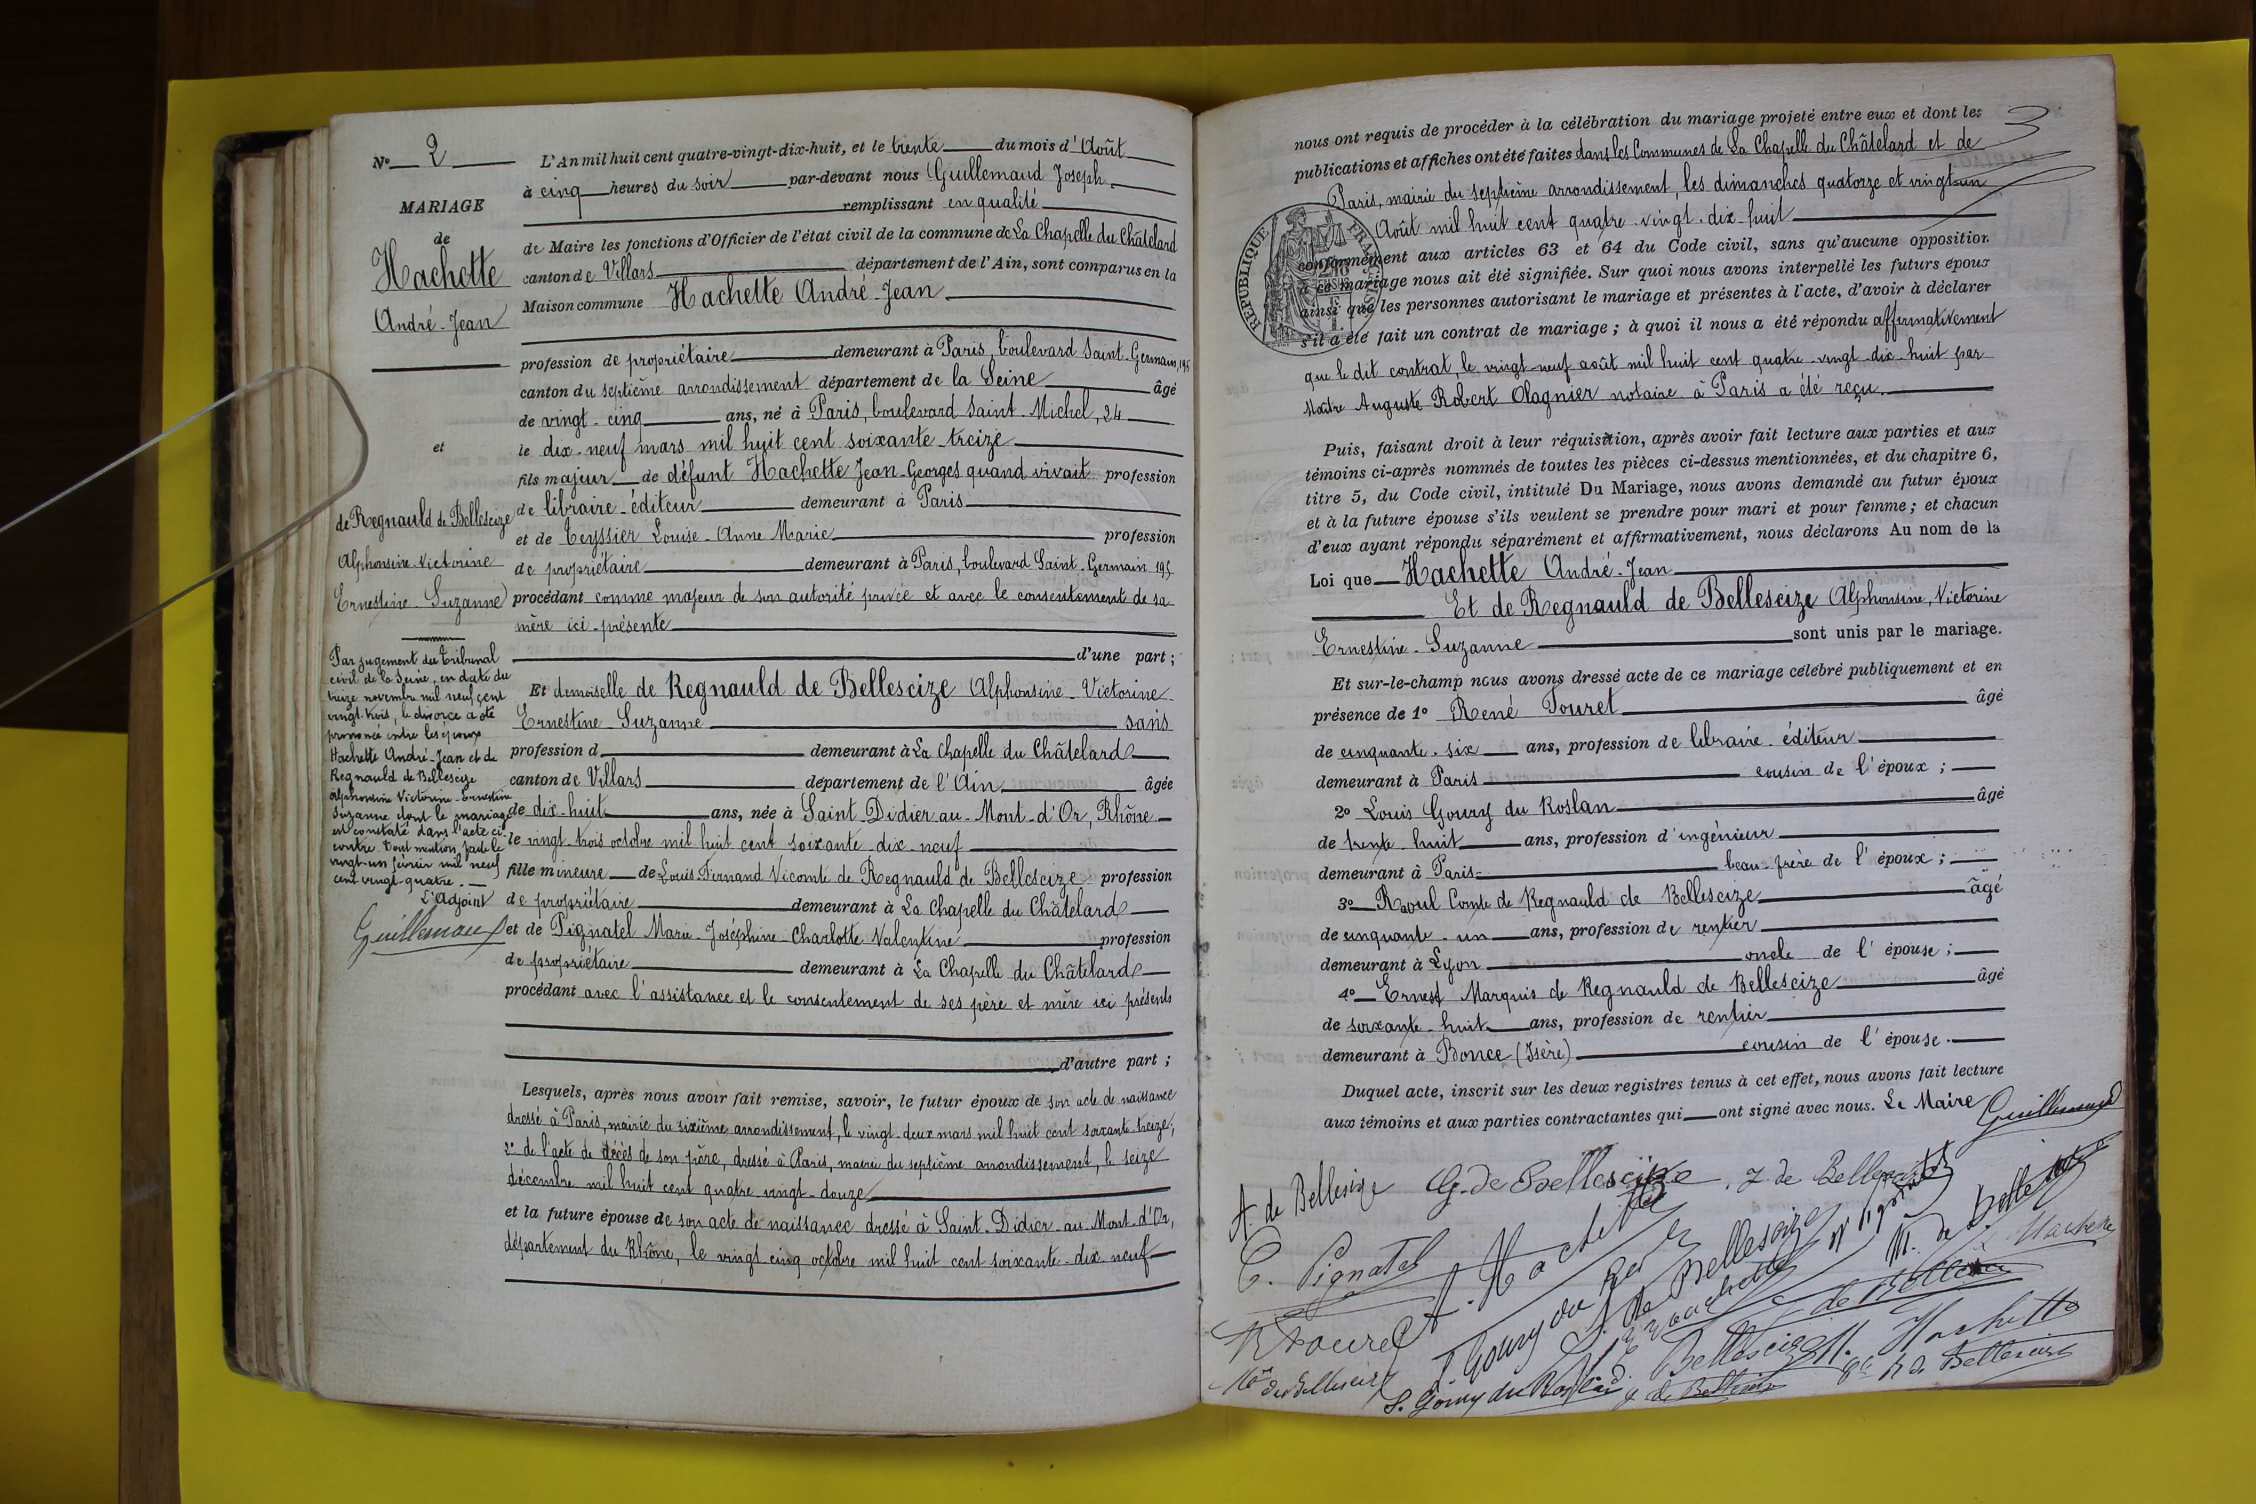 N° 2
MARIAGE
de
Hachette
André-Jean
et
de Regnauld de Bellescize
Alphonsine Victorine
Ernestine Suzanne
Par jugement du Tribunal
civil de la Seine, en date du
treize novembre mil neuf cent
vingt-trois, le divorce a été
prononcé entre les époux
Hachette André-Jean et de
Regnauld de Bellescize
Alphonsine Victorine-Ernestine
Suzanne dont le mariage
est constaté dans l'acte ci-
contre. Dont mention faite le
vingt-un février mil neuf
cent vingt-quatre.
L'Adjoint
Guillemaud
L'An mil huit cent quatre-vingt-dix-huit, et le trente du mois d'Août
à cinq heures du soir par-devant nous Guillemaud Joseph
remplissant en qualité
de Maire les fonctions d'Officier de l'état civil de la commune de La Chapelle du Châtelard
canton de Villars département de l'Ain, sont comparus en la
Maison commune Hachette André-Jean
profession de propriétaire demeurant à Paris, boulevard Saint-Germain, 195
canton du septième arrondissement département de la Seine âgé
de vingt-cinq ans, né à Paris, boulevard Saint-Michel, 24
le dix-neuf mars mil huit cent soixante-treize
fils majeur de défunt Hachette Jean-Georges quand vivait profession
de libraire-éditeur demeurant à Paris
et de Teyssier Louise-Anne Marie profession
de propriétaire demeurant à Paris, boulevard Saint-Germain 195
procédant comme majeur de son autorité privée et avec le consentement de sa
mère ici présente
d'une part;
Et demoiselle de Regnauld de Bellescize Alphonsine-Victorine
Ernestine-Suzanne sans
profession d demeurant à La Chapelle du Châtelard
canton de Villars département de l'Ain âgée
de dix-huit ans, née à Saint-Didier-au-Mont-d'Or, Rhône
le vingt-trois octobre mil huit cent soixante-dix-neuf
fille mineure de Louis Fernand Vicomte de Regnauld de Bellescize profession
de propriétaire demeurant à La Chapelle du Châtelard
et de Pignatel Marie-Joséphine-Charlotte Valentine profession
de propriétaire demeurant à La Chapelle du Châtelard
procédant avec l'assistance et le consentement de ses père et mère ici présents
d'autre part;
Lesquels, après nous avoir fait remise, savoir, le futur époux de son acte de naissance
dressé à Paris, mairie du sixième arrondissement, le vingt-deux mars mil huit cent soixante treize;
2° de l'acte de décès de son père, dressé à Paris, mairie du septième arrondissement, le seize
décembre mil huit cent quatre-vingt-douze
et la future épouse de son acte de naissance dressé à Saint-Didier-au-Mont-d'Or,
département du Rhône, le vingt-cinq octobre mil huit cent soixante-dix-neuf
3
nous ont requis de procéder à la célébration du mariage projeté entre eux et dont les
publications et affiches ont été faites dans les Communes de La Chapelle du Châtelard et de
Paris, mairie du septième arrondissement, les dimanches quatorze et vingt-un
Août mil huit cent quatre-vingt-dix-huit
RÉPUBLIQUE FRANÇAISE
conformément aux articles 63 et 64 du Code civil, sans qu'aucune opposition
à ce mariage nous ait été signifiée. Sur quoi nous avons interpellé les futurs époux
ainsi que les personnes autorisant le mariage et présentes à l'acte, d'avoir à déclarer
s'il a été fait un contrat de mariage; à quoi il nous a été répondu affirmativement
que le dit contrat, le vingt-neuf août mil huit cent quatre-vingt-dix-huit par
Maître Auguste Robert Olagnier notaire à Paris a été reçu.
Puis, faisant droit à leur réquisition, après avoir fait lecture aux parties et aux
témoins ci-après nommés de toutes les pièces ci-dessus mentionnées, et du chapitre 6,
titre 5, du Code civil, intitulé Du Mariage, nous avons demandé au futur époux
et à la future épouse s'ils veulent se prendre pour mari et pour femme; et chacun
d'eux ayant répondu séparément et affirmativement, nous déclarons Au nom de la
Loi que Hachette André-Jean
Et de Regnauld de Bellescize Alphonsine, Victorine
Ernestine-Suzanne sont unis par le mariage.
Et sur-le-champ nous avons dressé acte de ce mariage célébré publiquement et en
présence de 1° René Fouret âgé
de cinquante-six ans, profession de libraire-éditeur
demeurant à Paris cousin de l'époux;
2° Louis Goury du Roslan âgé
de trente huit ans, profession d'ingénieur
demeurant à Paris beau-frère de l'époux;
3° Raoul Comte de Regnauld de Bellescize âgé
de cinquante-un ans, profession de rentier
demeurant à Lyon oncle de l'épouse;
4° Ernest Marquis de Regnauld de Bellescize âgé
de soixante-huit ans, profession de rentier
demeurant à Bonce (Isère) cousin de l'épouse.
Duquel acte, inscrit sur les deux registres tenus à cet effet, nous avons fait lecture
aux témoins et aux parties contractantes qui ont signé avec nous. Le Maire
Guillemaud
A. de Bellescize G. de Bellescize J. de Bellescize
C. Pignatel A. Hachette S. de Bellescize M. de Bellescize
R Fouret L Goury du Roslan de Bellescize Hachette
de Bellescize S. Goury du Roslan de Bellescize R de Bellescize